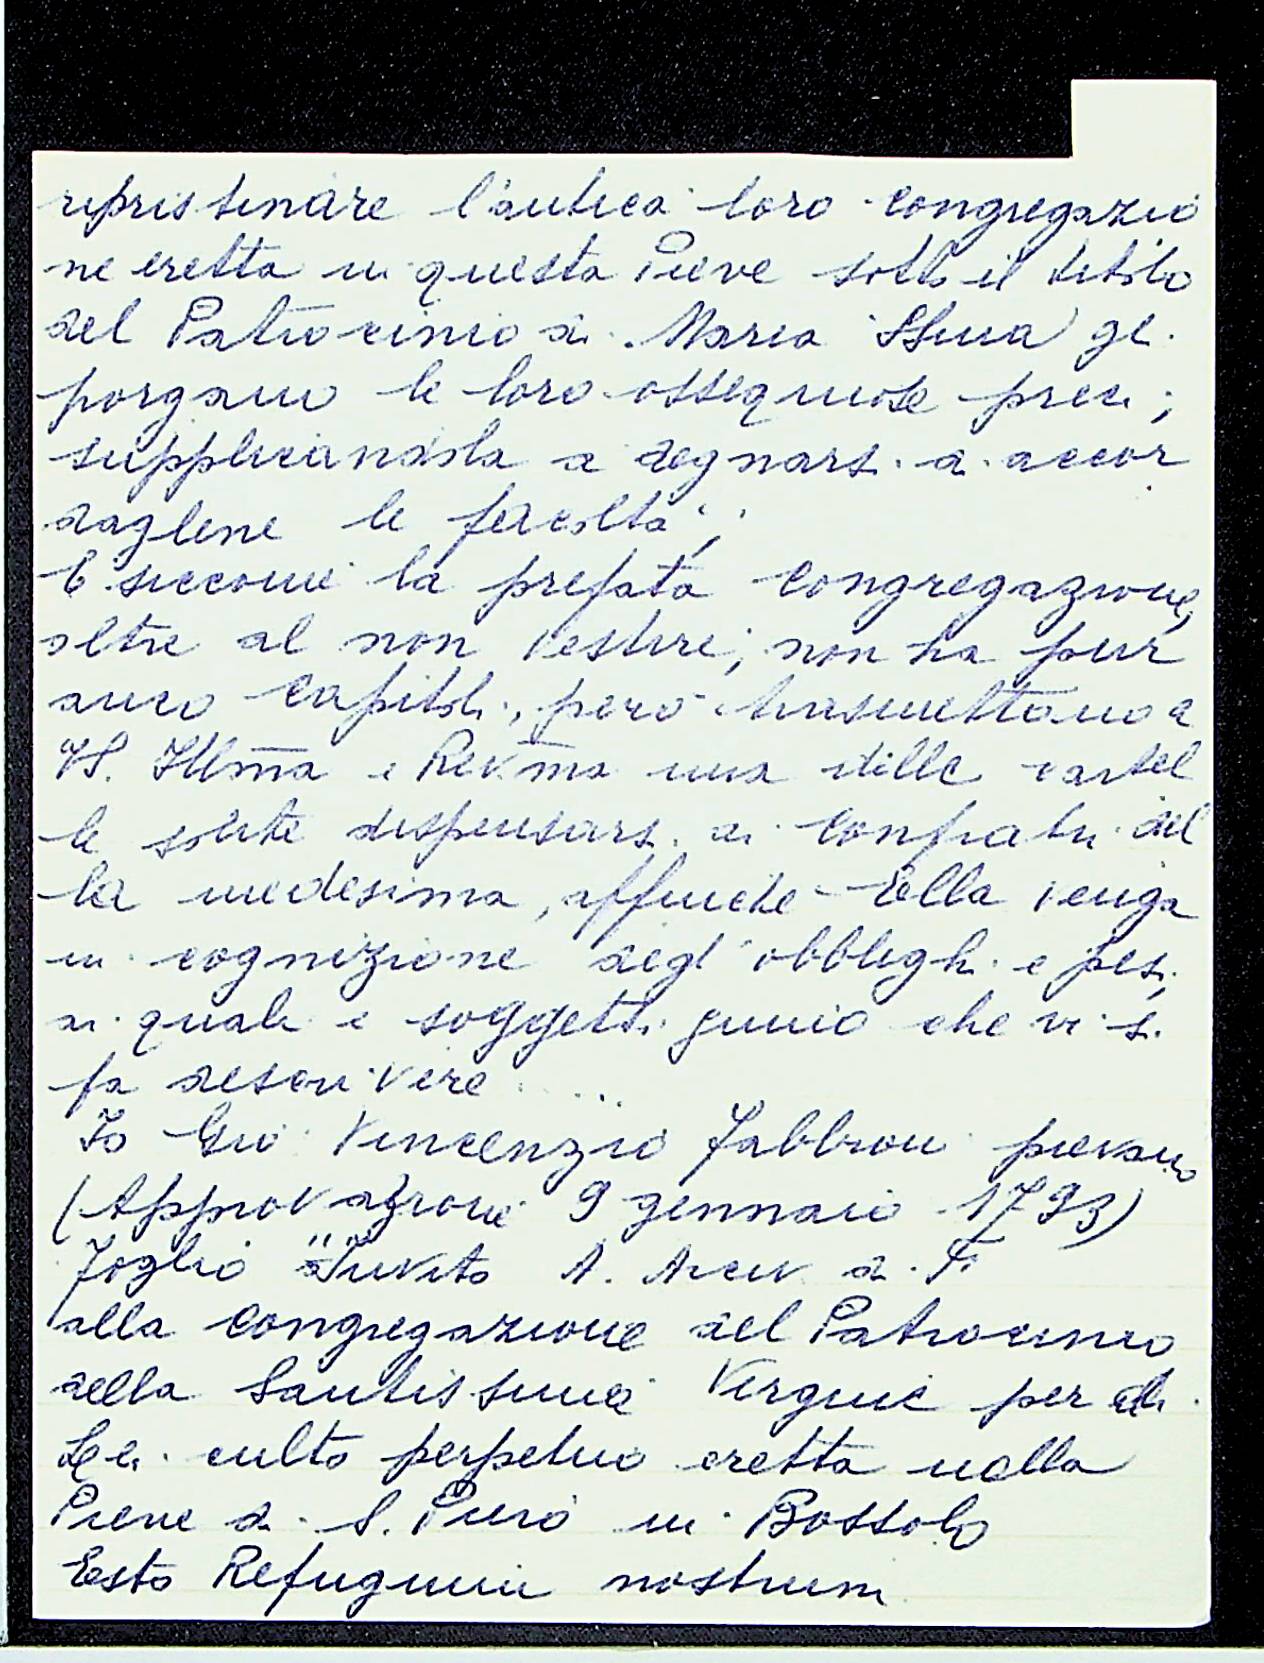 ripristinare l'antica loro congregazio
ne eretta in questa Pieve sotto il titolo
del Patrocinio di Maria SSma gl.
porgano le loro ossequiose preci;
supplicandola a degnarsi di accor
dagliene le facoltà;
E siccome la prefata Congregazione,
oltre al non vestire, non ha pur
anco Capitoli, però trasmettono a
VS. Illma e Revma una delle cartel
le solite dispensarsi ai Confratri del
la medesima, affinché Ella venga
in cognizione degl'obblighi e pesi,
ai quali è soggetto ognuno che vi si
fa descrivere ...
Io Gio Vincenzio Fabbroni pievano
(Approvazione 9 gennaio 1793)
Foglio "Invito A. Arciv di F.
alla Congregazione del Patrocinio
della Santissima Vergine per di
Lei culto perpetuo eretta nella
Pieve di S. Piero in Bossolo
Esto Refugium nostrum